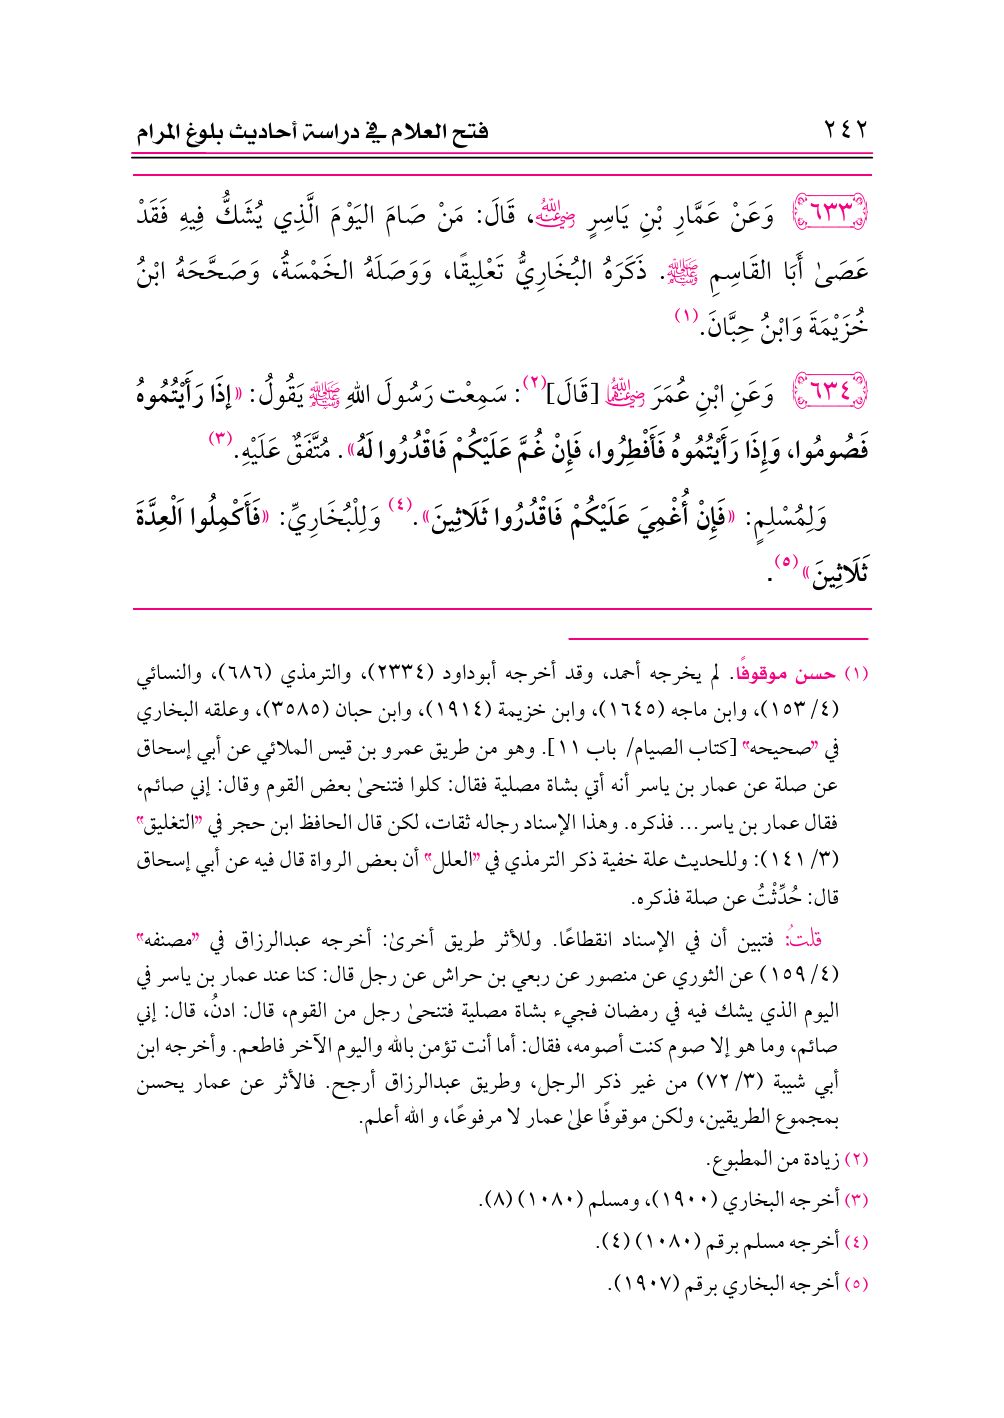 ٢٤٢ فتح العلام في دراسة أحاديث بلوغ المرام
٦٣٣ وَعَنْ عَمَّارِ بْنِ يَاسِرٍ رضي الله عنه، قَالَ: مَنْ صَامَ اليَوْمَ الَّذِي يُشَكُّ فِيهِ فَقَدْ
عَصَىٰ أَبَا القَاسِمِ ﷺ. ذَكَرَهُ البُخَارِيُّ تَعْلِيقًا، وَوَصَلَهُ الخَمْسَةُ، وَصَحَّحَهُ ابْنُ
خُزَيْمَةَ وَابْنُ حِبَّانَ.(١)
٦٣٤ وَعَنِ ابْنِ عُمَرَ رضي الله عنهما [قَالَ](٢): سَمِعْت رَسُولَ اللهِ ﷺ يَقُولُ: «إذَا رَأَيْتُمُوهُ
فَصُومُوا، وَإِذَا رَأَيْتُمُوهُ فَأَفْطِرُوا، فَإِنْ غُمَّ عَلَيْكُمْ فَاقْدُرُوا لَهُ». مُتَّفَقٌ عَلَيْهِ.(٣)
وَلِمُسْلِمٍ: «فَإِنْ أُغْمِيَ عَلَيْكُمْ فَاقْدُرُوا ثَلَاثِينَ».(٤) وَلِلْبُخَارِيِّ: «فَأَكْمِلُوا اَلْعِدَّةَ
ثَلَاثِينَ»(٥).
(١) حسن موقوفًا. لم يخرجه أحمد، وقد أخرجه أبوداود (٢٣٣٤)، والترمذي (٦٨٦)، والنسائي
(٤/ ١٥٣)، وابن ماجه (١٦٤٥)، وابن خزيمة (١٩١٤)، وابن حبان (٣٥٨٥)، وعلقه البخاري
في "صحيحه" [كتاب الصيام/ باب ١١]. وهو من طريق عمرو بن قيس الملائي عن أبي إسحاق
عن صلة عن عمار بن ياسر أنه أتي بشاة مصلية فقال: كلوا فتنحىٰ بعض القوم وقال: إني صائم،
فقال عمار بن ياسر... فذكره. وهذا الإسناد رجاله ثقات، لكن قال الحافظ ابن حجر في "التغليق"
(٣/ ١٤١): وللحديث علة خفية ذكر الترمذي في "العلل" أن بعض الرواة قال فيه عن أبي إسحاق
قال: حُدِّثْتُ عن صلة فذكره.
قلتُ: فتبين أن في الإسناد انقطاعًا. وللأثر طريق أخرىٰ: أخرجه عبدالرزاق في "مصنفه"
(٤/ ١٥٩) عن الثوري عن منصور عن ربعي بن حراش عن رجل قال: كنا عند عمار بن ياسر في
اليوم الذي يشك فيه في رمضان فجيء بشاة مصلية فتنحىٰ رجل من القوم، قال: ادنُ، قال: إني
صائم، وما هو إلا صوم كنت أصومه، فقال: أما أنت تؤمن بالله واليوم الآخر فاطعم. وأخرجه ابن
أبي شيبة (٣/ ٧٢) من غير ذكر الرجل، وطريق عبدالرزاق أرجح. فالأثر عن عمار يحسن
بمجموع الطريقين، ولكن موقوفًا علىٰ عمار لا مرفوعًا، و الله أعلم.
(٢) زيادة من المطبوع.
(٣) أخرجه البخاري (١٩٠٠)، ومسلم (١٠٨٠) (٨).
(٤) أخرجه مسلم برقم (١٠٨٠) (٤).
(٥) أخرجه البخاري برقم (١٩٠٧).